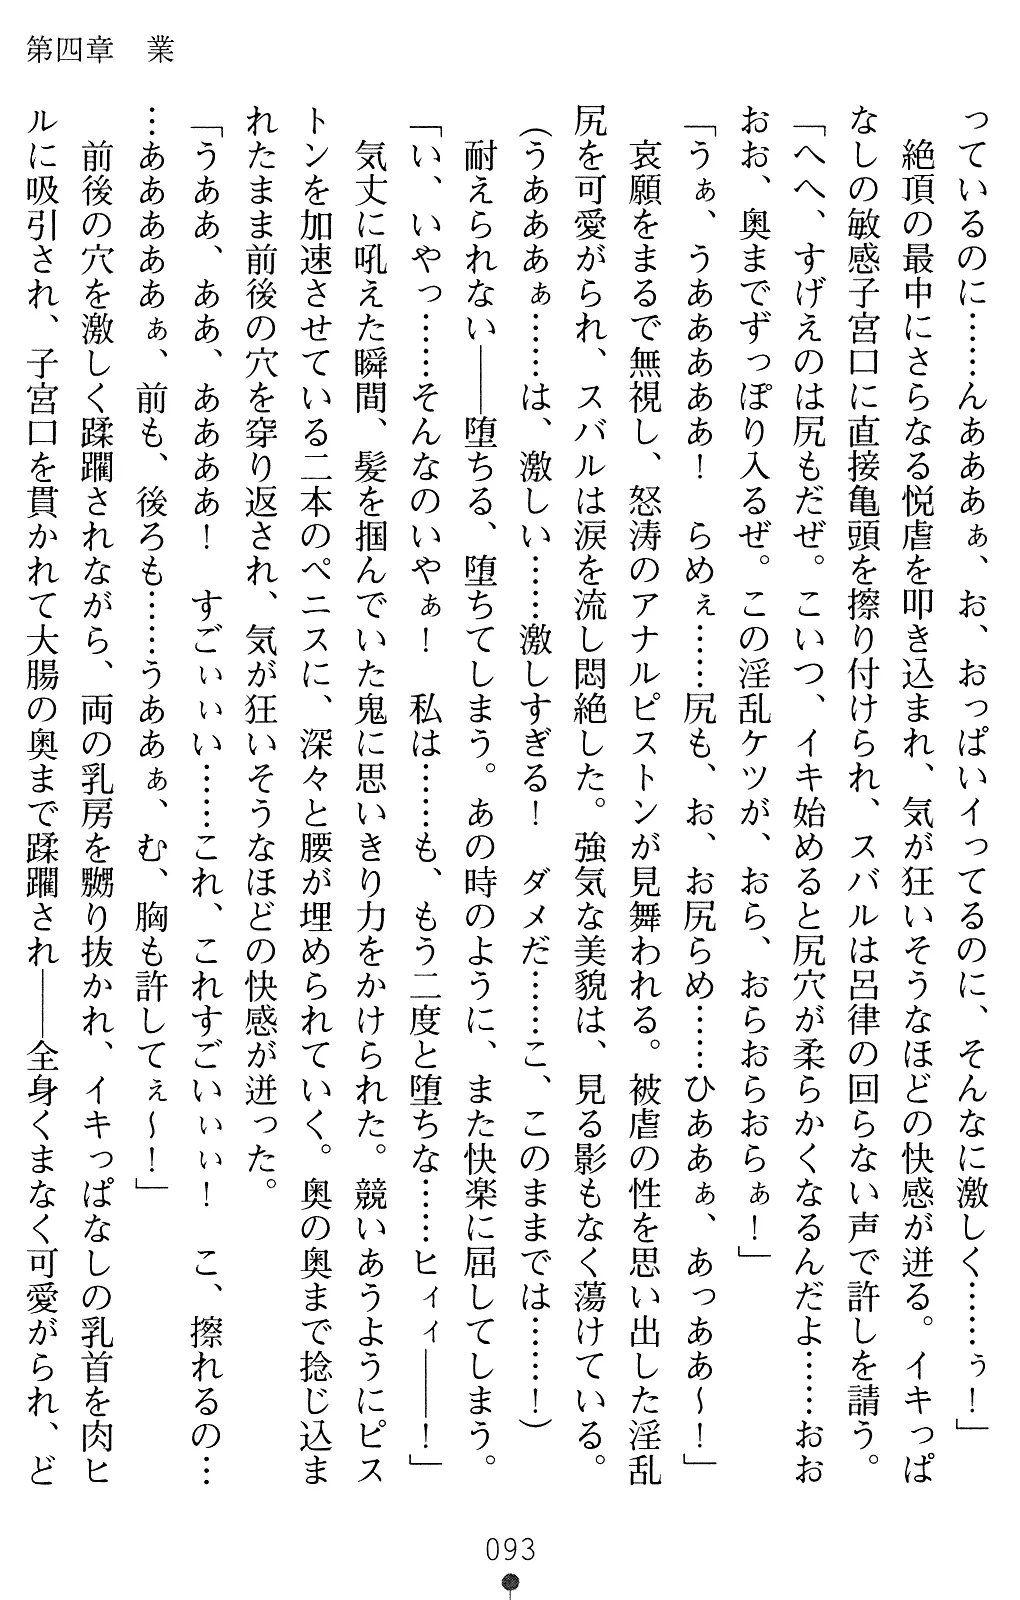 第四章　業
っているのに……んあああぁ、お、おっぱいイってるのに、そんなに激しく……ぅ！」
　絶頂の最中にさらなる悦虐を叩き込まれ、気が狂いそうなほどの快感が迸る。イキっぱ
なしの敏感子宮口に直接亀頭を擦り付けられ、スバルは呂律の回らない声で許しを請う。
「へへ、すげえのは尻もだぜ。こいつ、イキ始めると尻穴が柔らかくなるんだよ……おお
おお、奥までずっぽり入るぜ。この淫乱ケツが、おら、おらおらおらぁ！」
「うぁ、うああああ！　らめぇ……尻も、お、お尻らめ……ひああぁ、あっああ～！」
　哀願をまるで無視し、怒涛のアナルピストンが見舞われる。被虐の性を思い出した淫乱
尻を可愛がられ、スバルは涙を流し悶絶した。強気な美貌は、見る影もなく蕩けている。
（うあああぁ……は、激しい……激しすぎる！　ダメだ……こ、このままでは……！）
　耐えられない――堕ちる、堕ちてしまう。あの時のように、また快楽に屈してしまう。
「い、いやっ……そんなのいやぁ！　私は……も、もう二度と堕ちな……ヒィィ――！」
　気丈に吼えた瞬間、髪を掴んでいた鬼に思いきり力をかけられた。競いあうようにピス
トンを加速させている二本のペニスに、深々と腰が埋められていく。奥の奥まで捻じ込ま
れたまま前後の穴を穿り返され、気が狂いそうなほどの快感が迸った。
「うああ、ああ、ああああ！　すごぃぃい……これ、これすごいぃぃ！　こ、擦れるの…
…ああああああぁ、前も、後ろも……うああぁ、む、胸も許してぇ～！」
　前後の穴を激しく蹂躙されながら、両の乳房を嬲り抜かれ、イキっぱなしの乳首を肉ヒ
ルに吸引され、子宮口を貫かれて大腸の奥まで蹂躙され――全身くまなく可愛がられ、ど
093